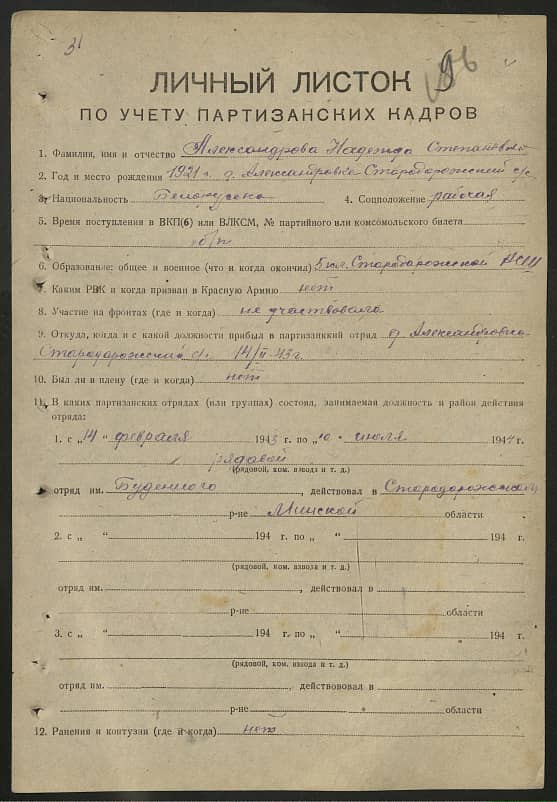 31
ЛИЧНЫЙ ЛИСТОК
ПО УЧЕТУ ПАРТИЗАНСКИХ КАДРОВ
1. Фамилия, имя и отчество Александрова Надежда Степановна
2. Год и место рождения 1921 г. д. Александровка Стародорожский р/с
3. Национальность Белоруска 4. Соцположение рабочая
5. Время поступления в ВКП(б) или ВЛКСМ, № партийного или комсомольского билета
б/п
6. Образование: общее и военное (что и когда окончил) 5 кл. Стародорожской НСШ
7. Каким РВК и когда призван в Красную Армию нет
8. Участие на фронтах (где и когда) не участвовала
9. Откуда, когда и с какой должности прибыл в партизанский отряд д. Александровка
Стародорожский 14/II-43 г.
10. Был ли в плену (где и когда) нет
11. В каких партизанских отрядах (или группах) состоял, занимаемая должность и район действия
отряда:
1. с „14" февраля 1943 г. по „10 " июля 1944 г.
рядовой
(рядовой, ком. взвода и т. д.)
отряд им. Буденного, действовал в Стародорожском
р-не Минской области
2. с „ " 194 г. по „ " 194 г.
(рядовой, ком. взвода и т. д.)
отряд им., действовал в
р-не области
3. с „ " 194 г. по „ " 194 г.
(рядовой, ком. взвода и т. д.)
отряд им., действововал в
р-не области
12. Ранения и контузии (где и когда) нет